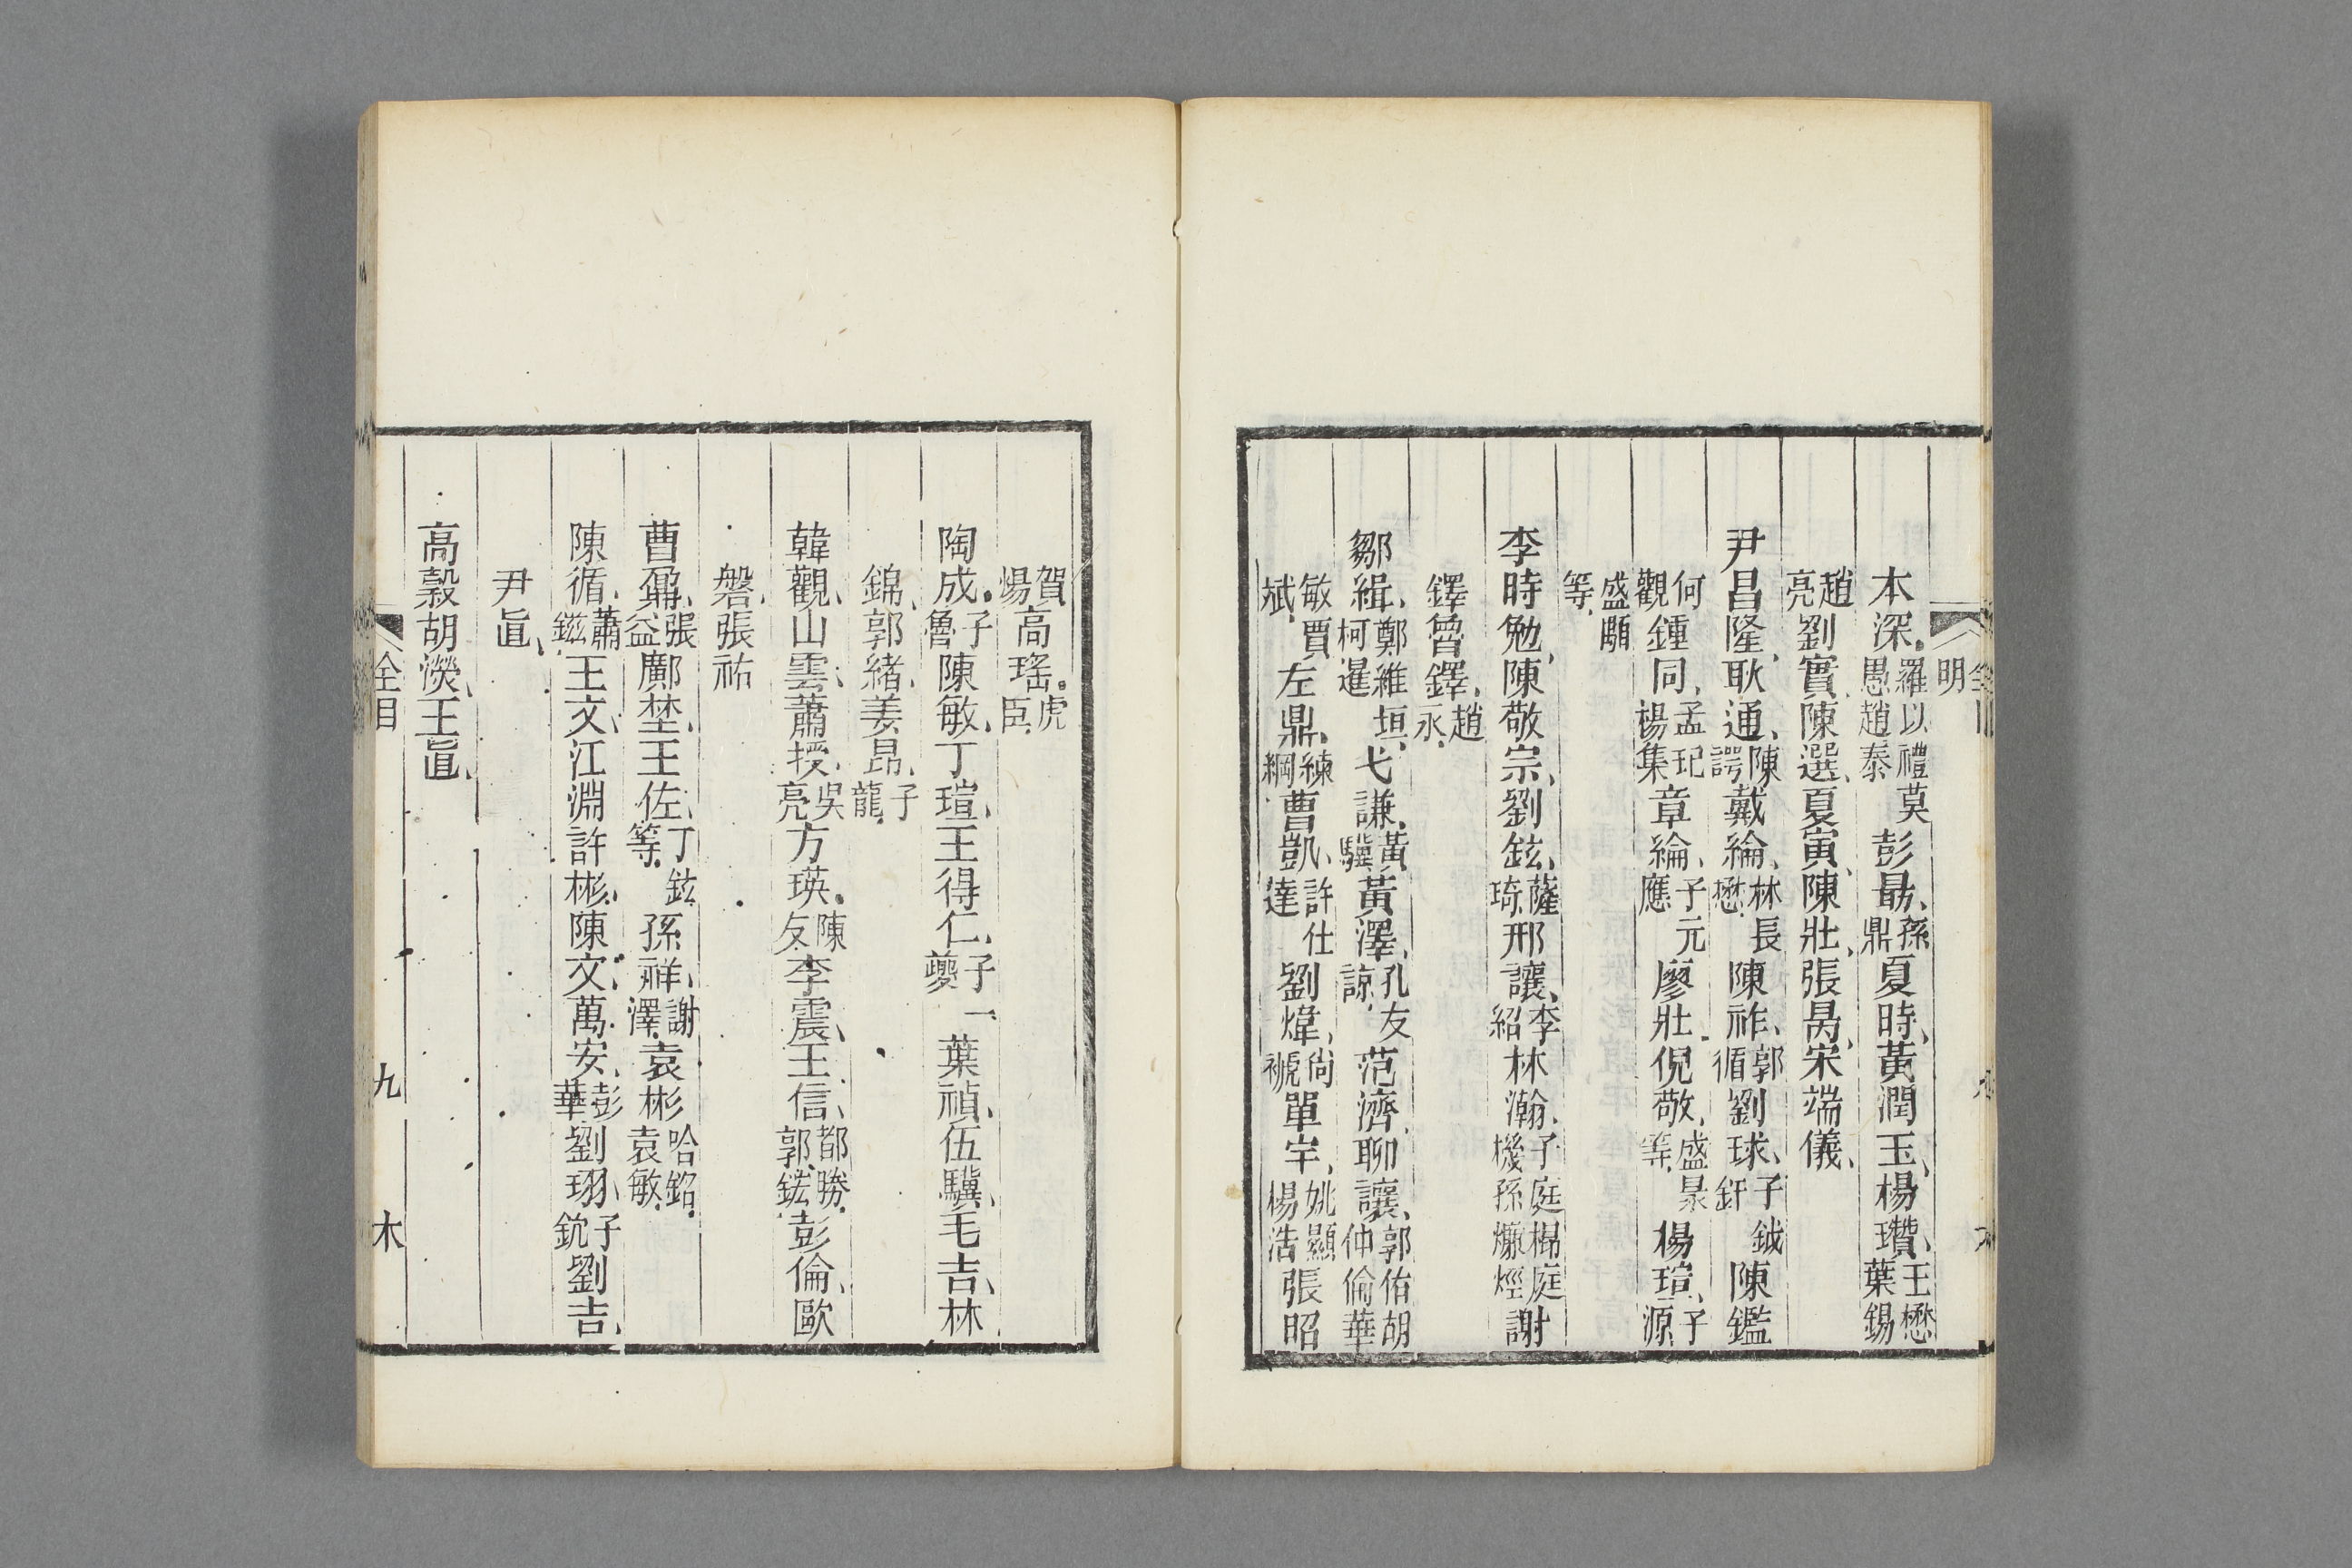 明
本深羅以禮莫愚趙泰彭勗孫鼎夏時黃潤玉楊瓚王懋葉錫
趙亮劉實陳選夏寅陳壯張昺宋端儀
尹昌隆耿通陳諤戴綸林長懋陳祚郭循劉球子鉞釪陳鑑
何觀鍾同孟玘楊集章綸子元應廖壯倪敬盛㬎等楊瑄子源
盛顒等
李時勉陳敬宗劉鉉薩琦邢讓李紹林瀚子庭㭿庭機孫燫烴謝
鐸魯鐸趙永
鄒緝鄭維垣柯暹弋謙黃驥黃澤孔友諒范濟聊讓郭佑胡仲倫華
敏賈斌左鼎練綱曹凱許仕達劉煒尚褫單宇姚顯楊浩張昭
賀煬高瑤虎臣
陶成子魯陳敏丁瑄王得仁子一夔葉禎伍驥毛吉林
錦郭緒姜昂子龍
韓觀山雲蕭授吳亮方瑛陳友李震王信都勝郭鋐彭倫歐
磐張祐
曹鼐張益鄺埜王佐丁鉉等孫祥謝澤袁彬哈銘袁敏
陳循蕭鎡王文江淵許彬陳文萬安彭華劉珝子鈗劉吉
尹直
高穀胡濙王直
全目
九
木